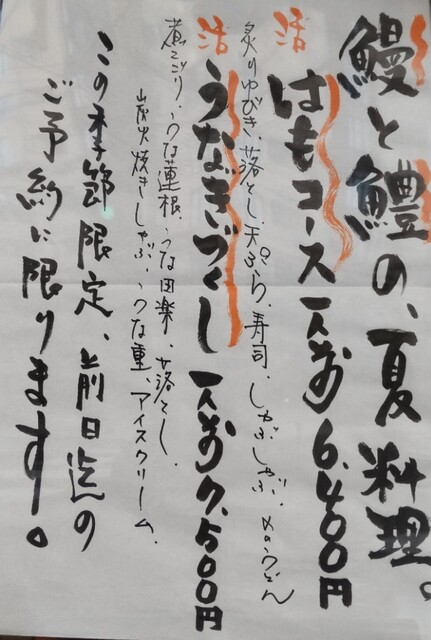 鰻と鱧の、夏料理。
活はもコース 一人前 6.400円
炙りゆびき、落とし、天ぷら、寿司、しゃぶしゃぶ、〆のうどん
活うなぎづくし 一人前 7.500円
煮こごり、うな蓮根、うな田楽、落とし、
炭火焼きしゃぶ、うな重、アイスクリーム、
この季節限定、前日迄の
ご予約に限ります。